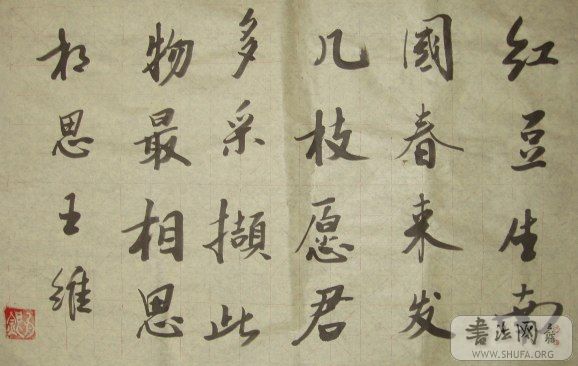 红豆生南
國春来发
几枝愿君
多采撷此
物最相思
相思王维
書法网
WWW.SHUFA.ORG